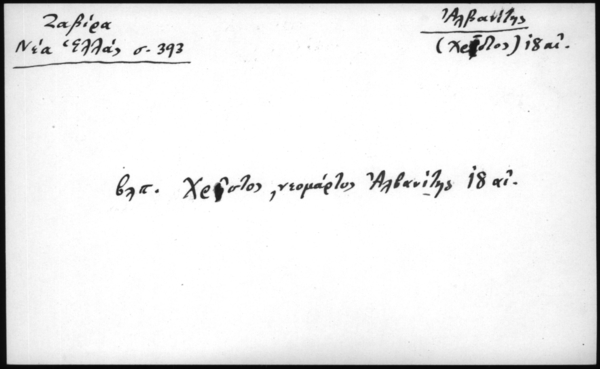 Ζαβίρα
Νέα Ἑλλάς σ. 393
Ἀλβανίτης
(Χρῆστος) ιη αἰ.
βλπ. Χρῆστος, νεομάρτυς Ἀλβανίτης ιη αἰ.